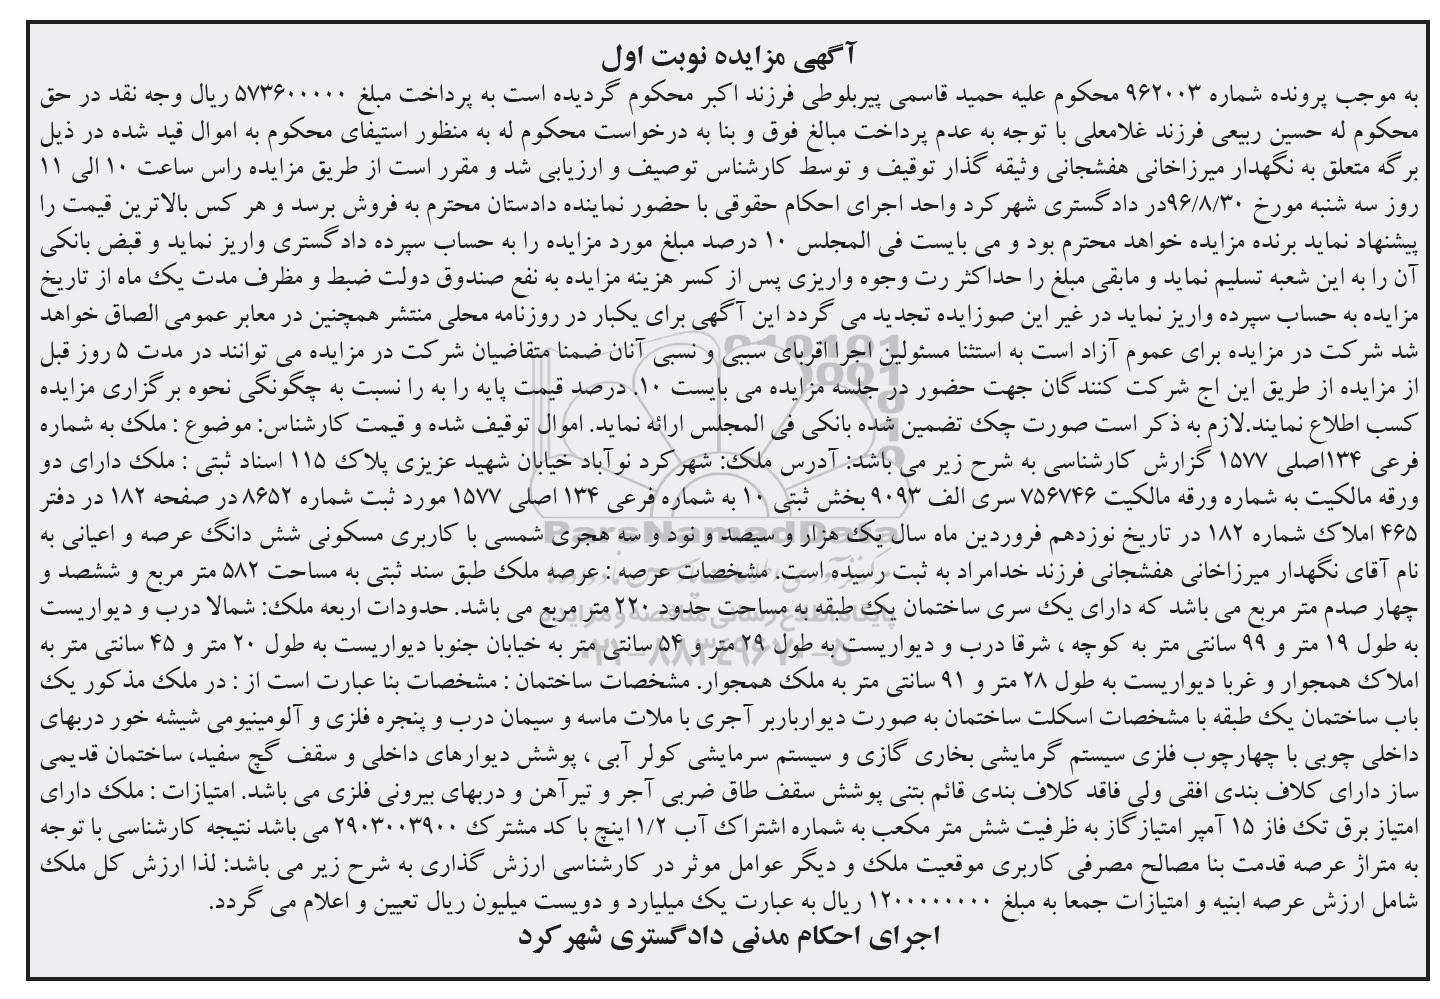 آگهی مزایده نوبت اول
به موجب پرونده شماره ۹۶۲۰۰۳ محکوم علیه حمید قاسمی پیربلوطی فرزند اکبر محکوم گردیده است به پرداخت مبلغ ۵۷۳۶۰۰۰۰۰ ریال وجه نقد در حق
محکوم له حسین ربیعی فرزند غلامعلی با توجه به عدم پرداخت مبالغ فوق و بنا به درخواست محکوم له به منظور استیفای محکوم به اموال قید شده در ذیل
برگه متعلق به نگهدار میرزاخانی هفشجانی وثیقه گذار توقیف و توسط کارشناس توصیف و ارزیابی شد و مقرر است از طریق مزایده راس ساعت ۱۰ الی ۱۱
روز سه شنبه مورخ ۹۶/۸/۳۰در دادگستری شهرکرد واحد اجرای احکام حقوقی با حضور نماینده دادستان محترم به فروش برسد و هر کس بالاترین قیمت را
پیشنهاد نماید برنده مزایده خواهد محترم بود و می بایست فی المجلس ۱۰ درصد مبلغ مورد مزایده را به حساب سپرده دادگستری واریز نماید و قبض بانکی
آن را به این شعبه تسلیم نماید و مابقی مبلغ را حداکثر رت وجوه واریزی پس از کسر هزینه مزایده به نفع صندوق دولت ضبط و مظرف مدت یک ماه از تاریخ
مزایده به حساب سپرده واریز نماید در غیر این صوزایده تجدید می گردد این آگهی برای یکبار در روزنامه محلی منتشر همچنین در معابر عمومی الصاق خواهد
شد شرکت در مزایده برای عموم آزاد است به استثنا مسئولین اجرا اقربای سببی و نسبی آنان ضمنا متقاضیان شرکت در مزایده می توانند در مدت ۵ روز قبل
از مزایده از طریق این اج شرکت کنندگان جهت حضور در جلسه مزایده می بایست ۱۰. درصد قیمت پایه را به را نسبت به چگونگی نحوه برگزاری مزایده
کسب اطلاع نمایند.لازم به ذکر است صورت چک تضمین شده بانکی فی المجلس ارائه نماید. اموال توقیف شده و قیمت کارشناس: موضوع : ملک به شماره
فرعی ۱۳۴اصلی ۱۵۷۷ گزارش کارشناسی به شرح زیر می باشد: آدرس ملک: شهرکرد نوآباد خیابان شهید عزیزی پلاک ۱۱۵ اسناد ثبتی : ملک دارای دو
ورقه مالکیت به شماره ورقه مالکیت ۷۵۶۷۴۶ سری الف ۹۰۹۳ بخش ثبتی ۱۰ به شماره فرعی ۱۳۴ اصلی ۱۵۷۷ مورد ثبت شماره ۸۶۵۲ در صفحه ۱۸۲ در دفتر
۴۶۵ املاک شماره ۱۸۲ در تاریخ نوزدهم فروردین ماه سال یک هزار و سیصد و نود و سه هجری شمسی با کاربری مسکونی شش دانگ عرصه و اعیانی به
نام آقای نگهدار میرزاخانی هفشجانی فرزند خدامراد به ثبت رسیده است. مشخصات عرصه : عرصه ملک طبق سند ثبتی به مساحت ۵۸۲ متر مربع و ششصد و
چهار صدم متر مربع می باشد که دارای یک سری ساختمان یک طبقه به مساحت حدود ۲۲۰ متر مربع می باشد. حدودات اربعه ملک: شمالا درب و دیواریست
به طول ۱۹ متر و ۹۹ سانتی متر به کوچه ، شرقا درب و دیواریست به طول ۲۹ متر و ۵۴ سانتی متر به خیابان جنوبا دیواریست به طول ۲۰ متر و ۴۵ سانتی متر به
املاک همجوار و غربا دیواریست به طول ۲۸ متر و ۹۱ سانتی متر به ملک همجوار. مشخصات ساختمان : مشخصات بنا عبارت است از : در ملک مذکور یک
باب ساختمان یک طبقه با مشخصات اسکلت ساختمان به صورت دیوارباربر آجری با ملات ماسه و سیمان درب و پنجره فلزی و آلومینیومی شیشه خور دربهای
داخلی چوبی با چهارچوب فلزی سیستم گرمایشی بخاری گازی و سیستم سرمایشی کولر آبی ، پوشش دیوارهای داخلی و سقف گچ سفید، ساختمان قدیمی
ساز دارای کلاف بندی افقی ولی فاقد کلاف بندی قائم بتنی پوشش سقف طاق ضربی آجر و تیرآهن و دربهای بیرونی فلزی می باشد. امتیازات : ملک دارای
امتیاز برق تک فاز ۱۵ آمپر امتیازگاز به ظرفیت شش متر مکعب به شماره اشتراک آب ۱/۲ اینچ با کد مشترک ۲۹۰۳۰۰۳۹۰۰ می باشد نتیجه کارشناسی با توجه
به متراژ عرصه قدمت بنا مصالح مصرفی کاربری موقعیت ملک و دیگر عوامل موثر در کارشناسی ارزش گذاری به شرح زیر می باشد: لذا ارزش کل ملک
شامل ارزش عرصه ابنیه و امتیازات جمعا به مبلغ ۱۲۰۰۰۰۰۰۰۰ ریال به عبارت یک میلیارد و دویست میلیون ریال تعیین و اعلام می گردد.
اجرای احکام مدنی دادگستری شهرکرد
ParsNamadData
پایگاه اطلاع رسانی مناقصه و مزایده
۰۲۱-۸۸۳۴۹۶۷۰-۵